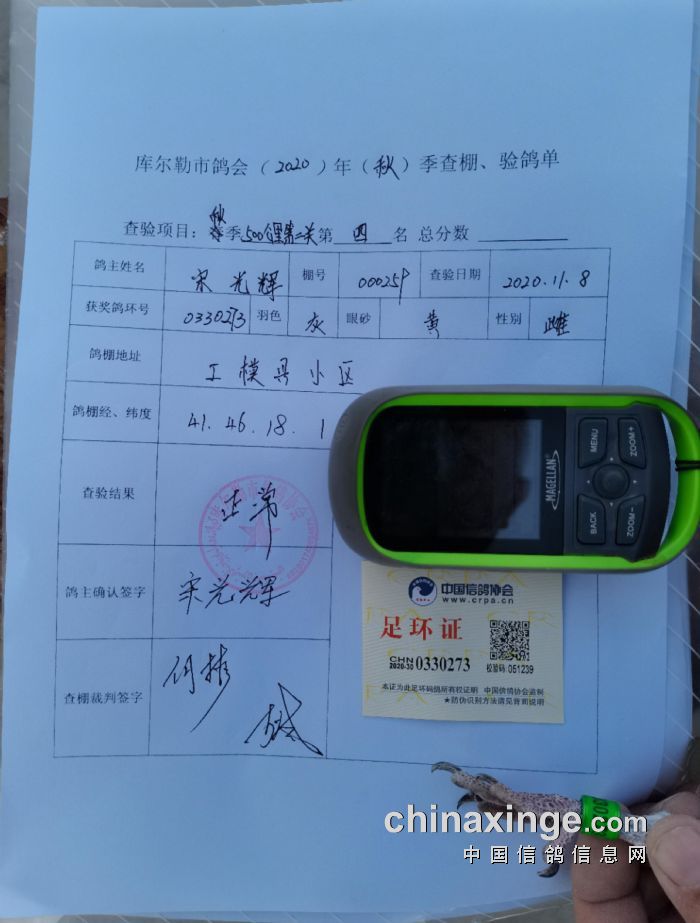 库尔勒市鸽会（2020）年（秋）季查棚、验鸽单
查验项目：秋季500公里第二关第 四 名 总分数
鸽主姓名 宋光辉 棚号 000259 查验日期 2020.11.8
获奖鸽环号 0330273 羽色 灰 眼砂 黄 性别 雌
鸽棚地址 工模具小区
鸽棚经、纬度 41.46.18.1
查验结果 正常
鸽主确认签字 宋光辉
查棚裁判签字
MAGELLAN
MENU
ZOOM+
BACK
ZOOM−
中国信鸽协会
www.crpa.cn
足环证
CHN
2020-30 0330273 校验码:051239
本证为此足环码鸽所有权证明 中国信鸽协会监制
★防伪识别方法请见背面说明
chinaxinge.com
中国信鸽信息网